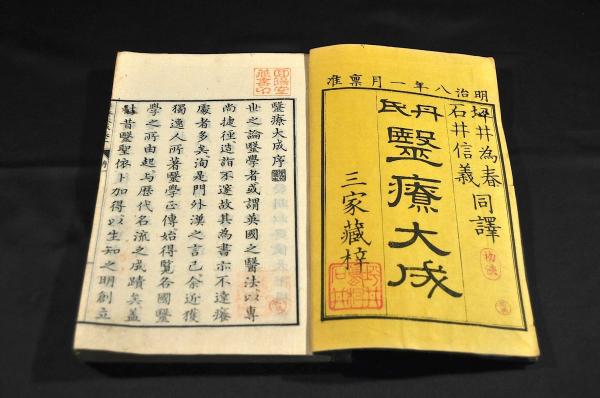 明治八年一月稟准
坪井為春
石井信義
同譯
丹氏
醫療大成
三家藏梓
醫療大成序
世之論醫學者或謂英國之醫法以專
尚捷徑造詣不邃故其為書亦不達癢
處者多矣洵是門外漢之言已余近獲
獨逸人所著醫學正傳始得覧各國醫
學之所由起与歴代名流之成蹟矣蓋
昔醫聖傢卜加得以生知之明創立